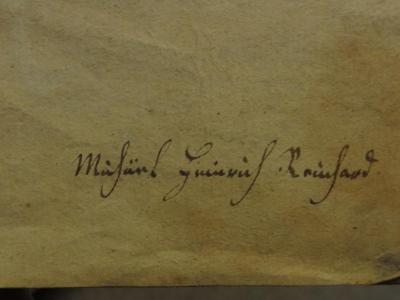 Michäel Heinrich Reinhard